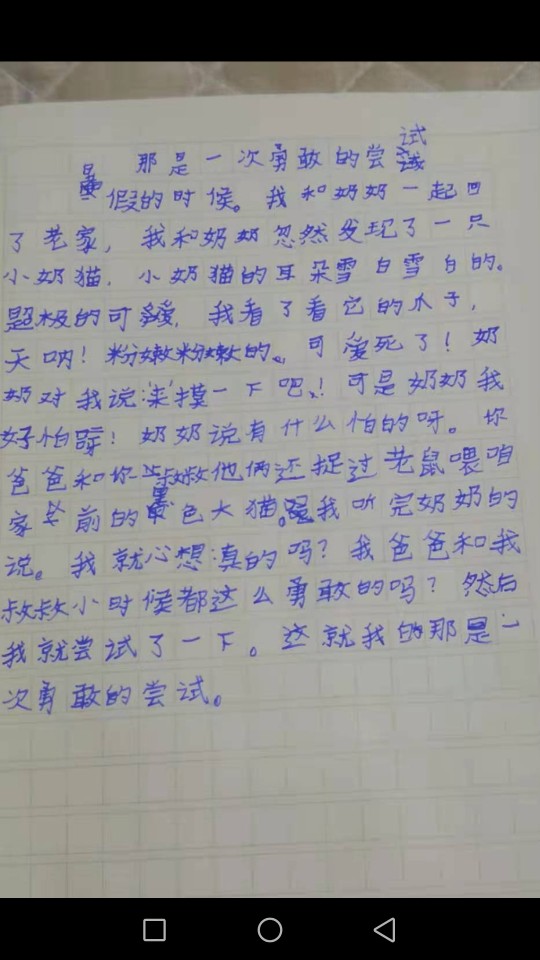 那是一次勇敢的尝试
暑假的时候。我和奶奶一起回
了老家，我和奶奶忽然发现了一只
小奶猫，小奶猫的耳朵雪白雪白的。
超极的可爱，我看了看它的爪子，
天呐！粉嫩粉嫩的。可爱死了！奶
奶对我说：来摸一下吧！可是奶奶我
好怕呀！奶奶说有什么怕的呀。你
爸爸和你叔叔他俩还捉过老鼠喂咱
家以前的黑色大猫。我听完奶奶的
说。我就心想：真的吗？我爸爸和我
叔叔小时候都这么勇敢的吗？然后
我就尝试了一下。这就我的那是一
次勇敢的尝试。